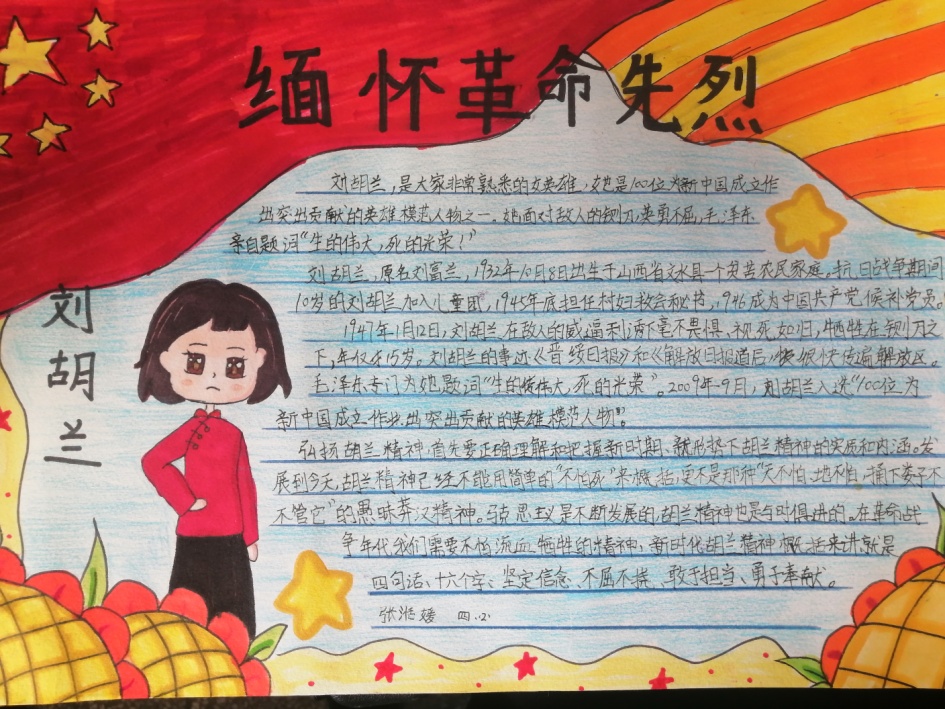 缅怀革命先烈
刘胡兰
刘胡兰,是大家非常熟悉的女英雄,她是100位为新中国成立作
出突出贡献的英雄模范人物之一。她面对敌人的铡刀,英勇不屈,毛泽东
亲自题词“生的伟大,死的光荣!”
刘胡兰,原名刘富兰,1932年10月8日出生于山西省文水县一个贫苦农民家庭。抗日战争期间
10岁的刘胡兰加入儿童团,1945年底担任村妇救会秘书,1946成为中国共产党候补党员,
1947年1月12日,刘胡兰在敌人的威逼利诱下毫不畏惧、视死如归,牺牲在铡刀之
下,年仅15岁。刘胡兰的事迹《晋绥日报》和《解放日报道后,很快传遍解放区。
毛泽东专门为她题词“生的伟大,死的光荣”。2009年9月,刘胡兰入选“100位为
新中国成立作出突出贡献的英雄模范人物”。
弘扬胡兰精神首先要正确理解和把握新时期、新形势下胡兰精神的实质和内涵。发
展到今天,胡兰精神已经不能用简单的“不怕死”来概括,更不是那种“天不怕、地不怕、捅下娄子不
不管它”的愚昧莽汉精神。马克思主义是不断发展的,胡兰精神也是与时俱进的。在革命战
争年代,我们需要不怕流血牺牲的精神、新时代胡兰精神概括来讲,就是
四句话、十六个字:坚定信念、不屈不挠、敢于担当、勇于奉献。
张 媛 四.